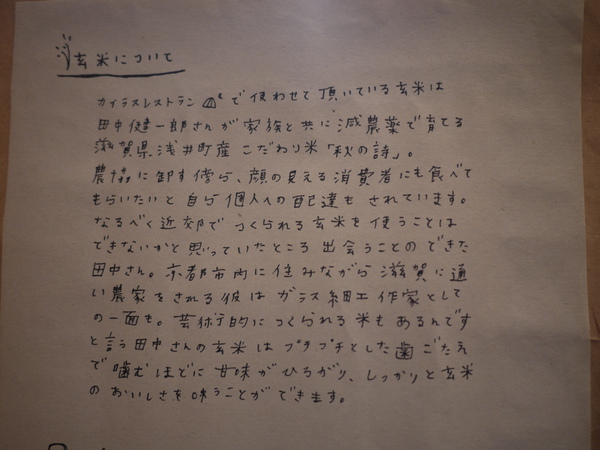 玄米について
カイラスレストランで使わせて頂いている玄米は
田中健一郎さんが家族と共に減農薬で育てる
滋賀県浅井町産こだわり米「秋の詩」。
農協に卸す傍ら、顔の見える消費者にも食べて
もらいたいと自ら個人への配達もされています。
なるべく近郊でつくられる玄米を使うことは
できないかと思っていたところ出会うことのできた
田中さん。京都市内に住みながら滋賀に通
い農家をされる彼はガラス細工作家として
の一面も。芸術的につくられる米もあるんです
と言う田中さんの玄米はプチプチとした歯ごたえ
で噛むほどに甘味がひろがり、しっかりと玄米
のおいしさを味うことができます。